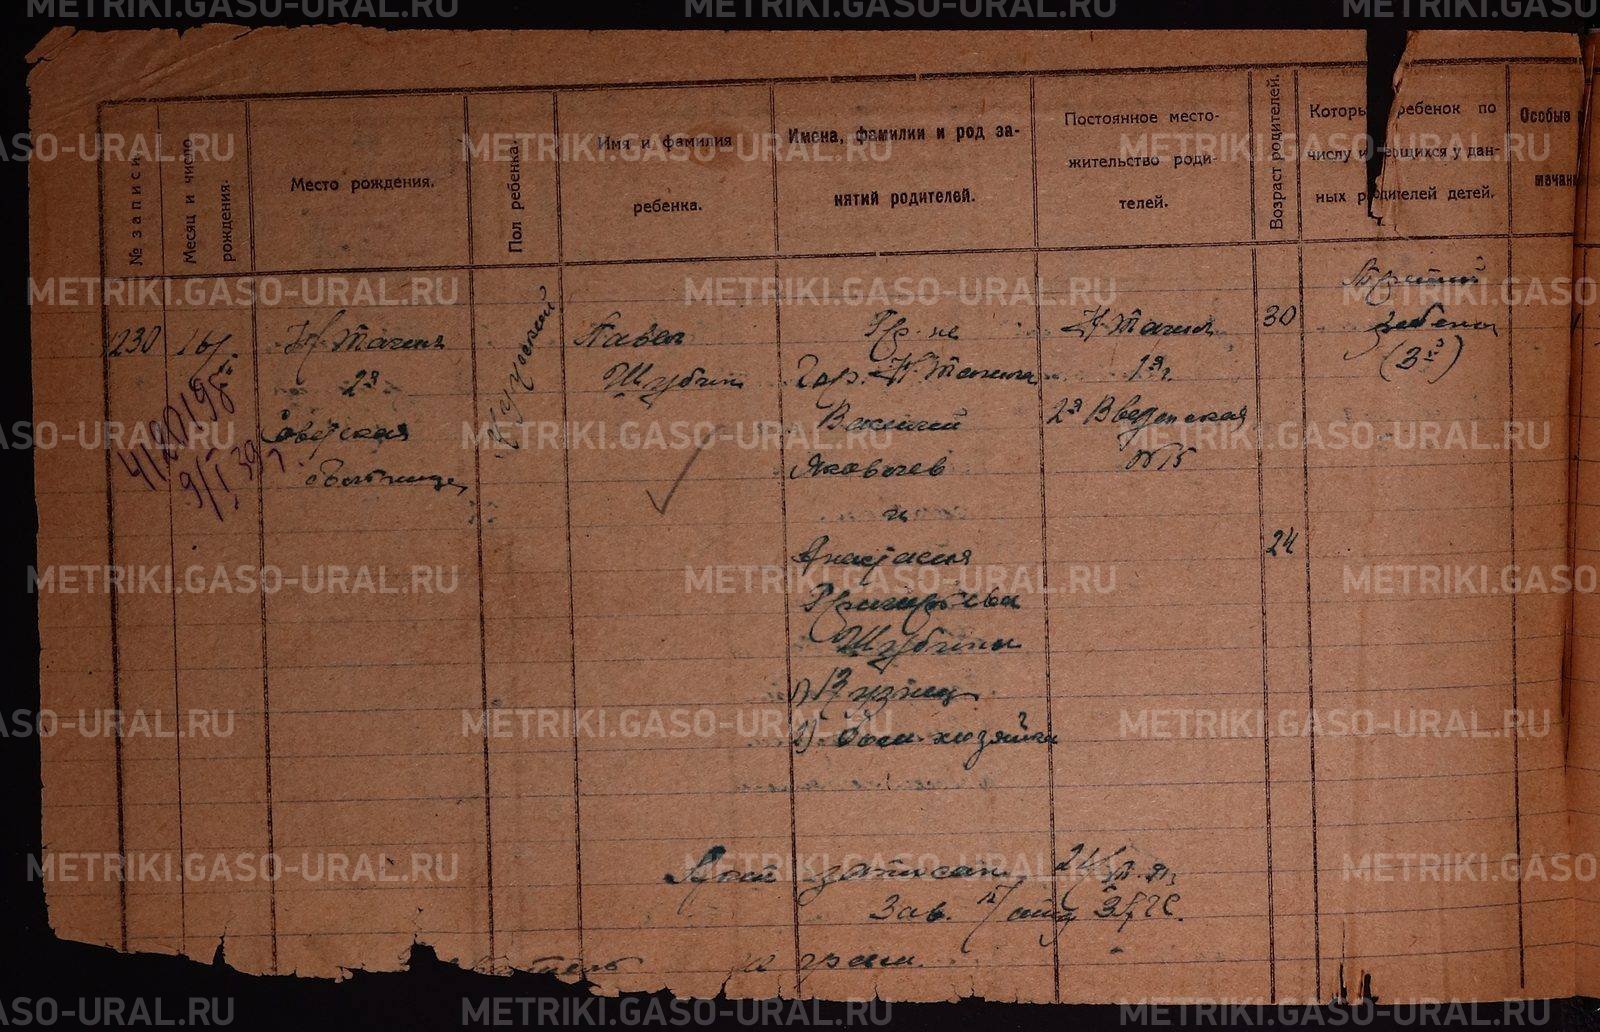 METRIKI.GASO-URAL.RU
№ записи.
Месяц и число рождения.
Место рождения.
Пол ребенка.
Имя и фамилия
ребенка.
Имена, фамилии и род за-
нятий родителей.
Постоянное место-
жительство роди-
телей.
Возраст родителей.
Которы ребенок по
числу и еющихся у дан-
ных родителей детей.
Особые
мечани
230
Н Тагил
2я
Советская
больница
Мужской
Павел
Шубин
Гр-не
гор. Н Тагила
Василий
Яковлев
и
Анастасия
Григорьева
Шубины
1) Кузнец
2) Дом. хозяйка
Н Тагил
1я г.
2я Введенская
№ 15
30
24
Третий
ребенок
(3й)
9/I 39
Акт записан 24/
Зав. ЗАГС.